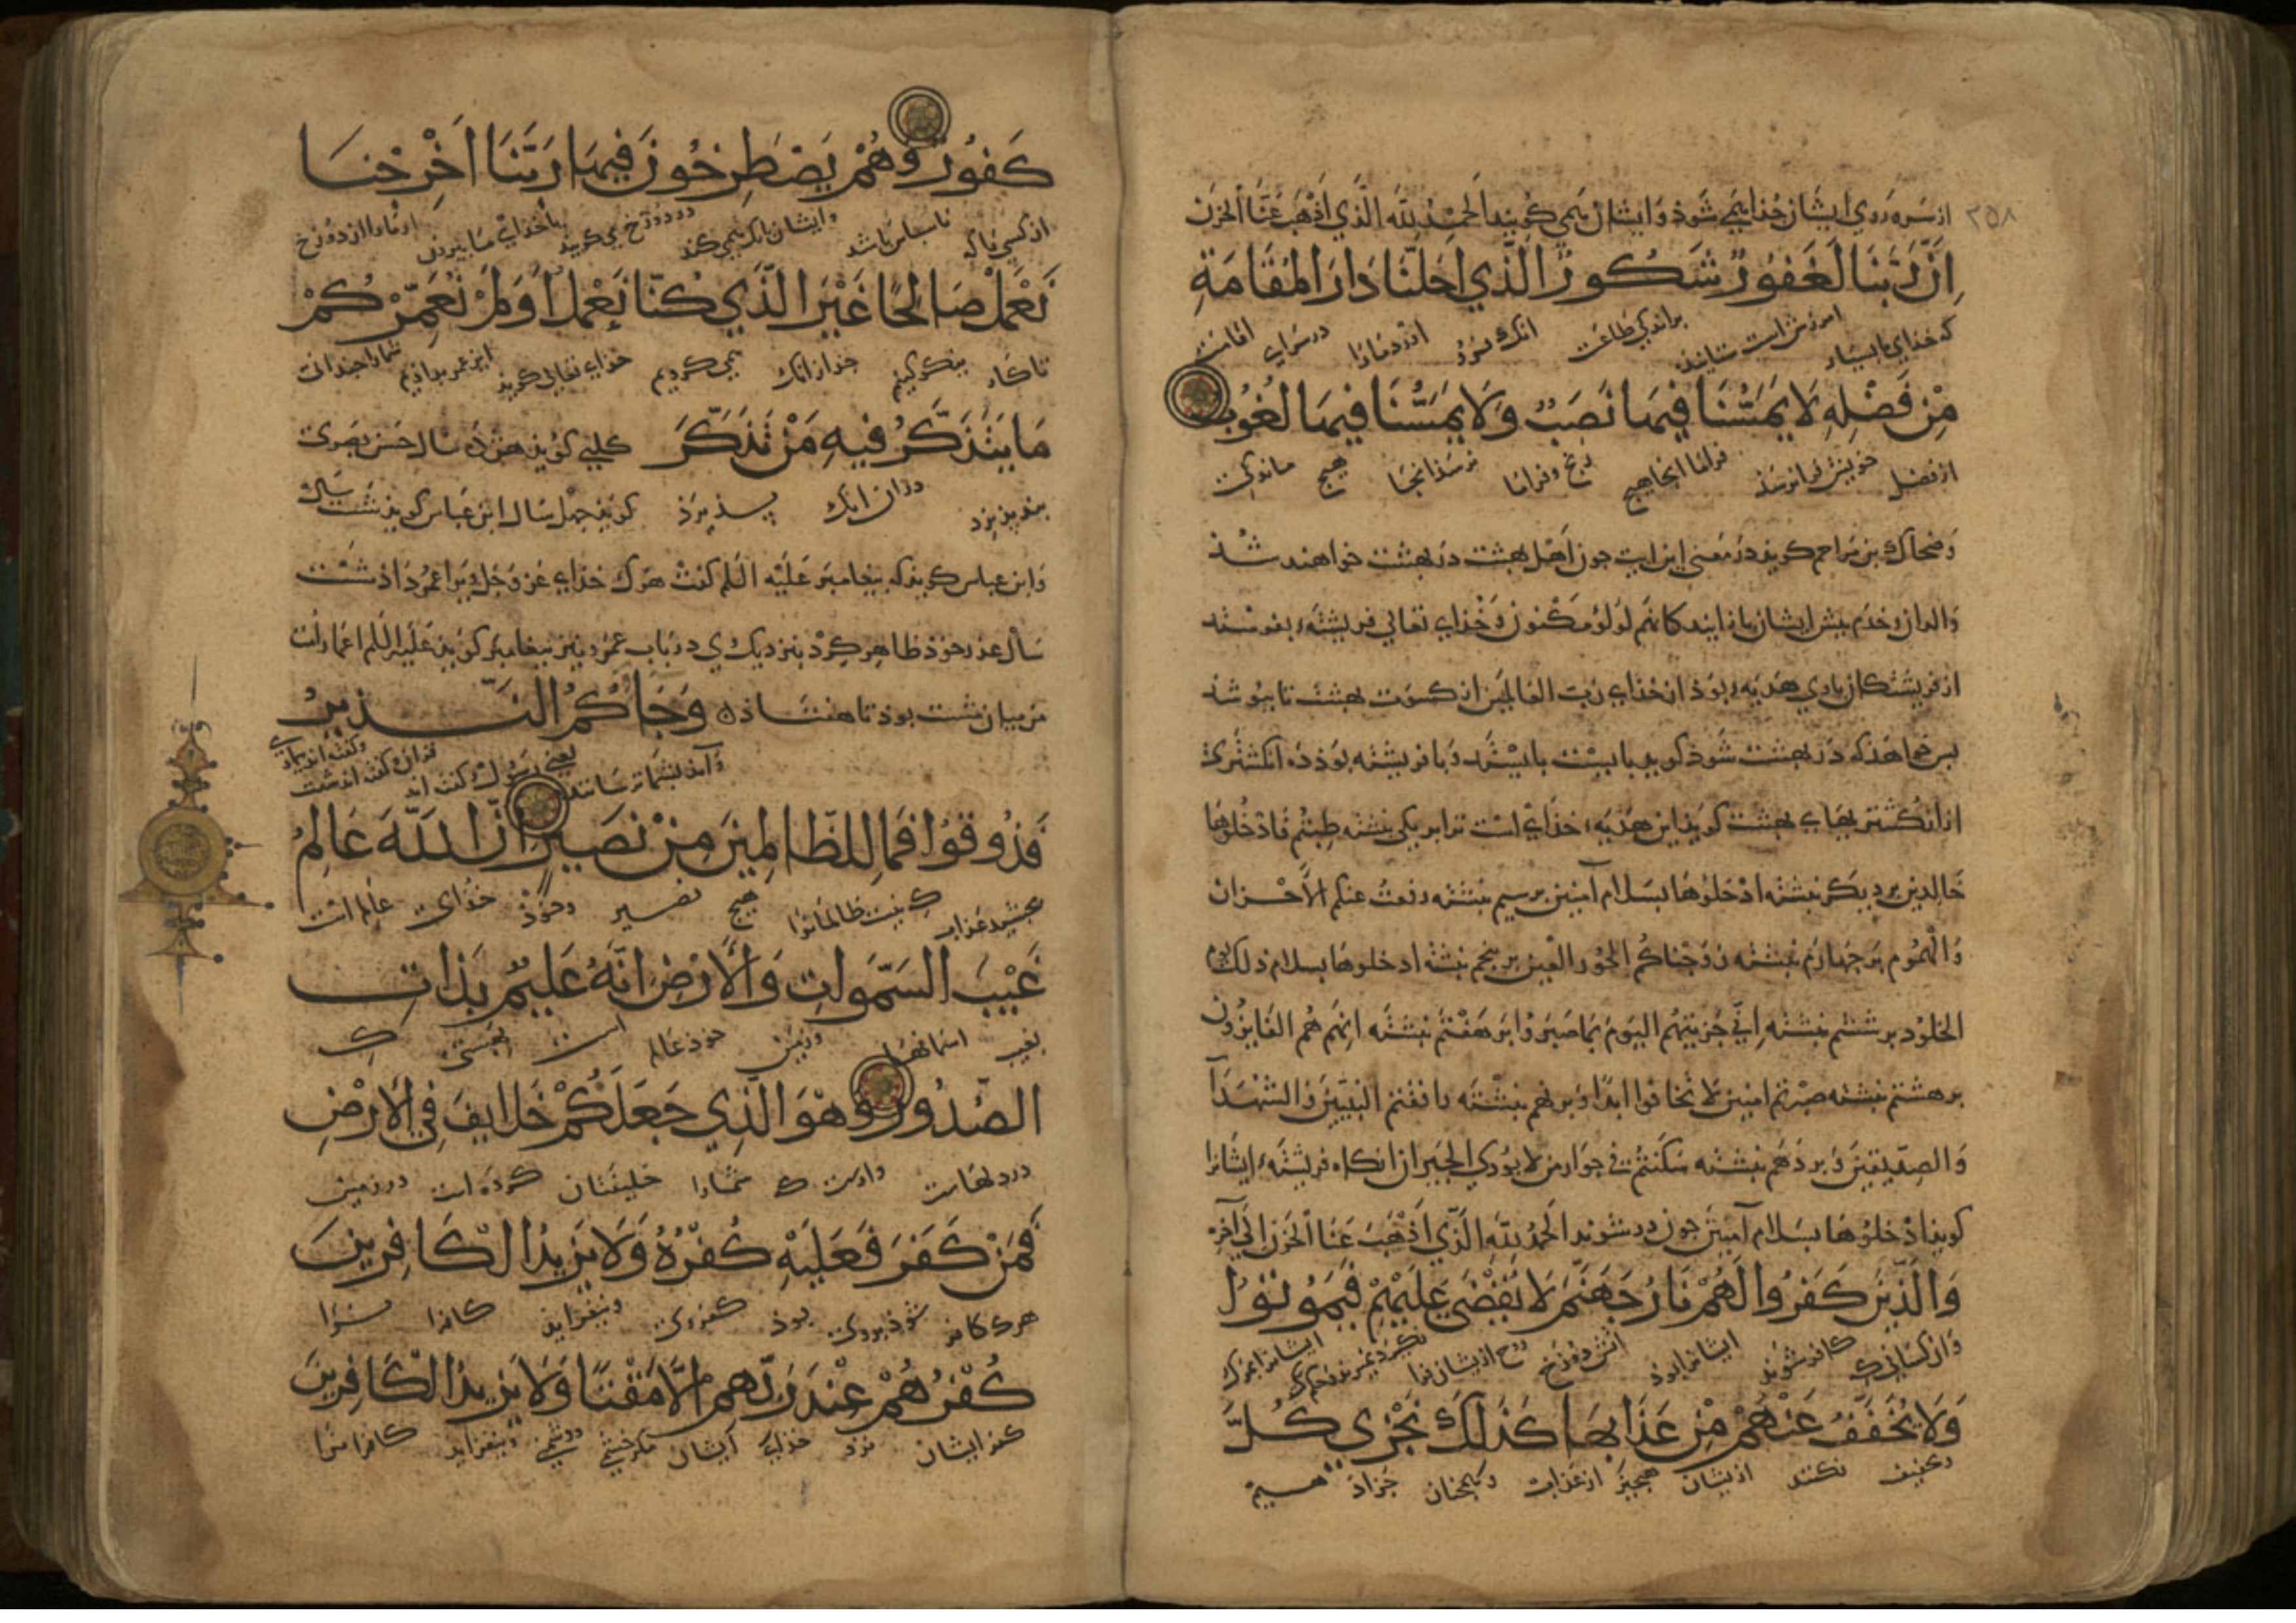 ٢٥٨
از سر روی ایشان جذا می شود و ایشان می کویند الحَمْدُ لِلَّه الَّذي اَذْهَبَ عَنَّا الْحَزَنَ
اِنَّ رَبَّنَا لَغَفُورٌ شَكُورٌ الَّذي اَحَلَّنَا دَارَ المُقَامَةِ
که خدای ما بسیار امرزش است ستاننده طاعت انک فرود اورد مارا در سرای اقامت
مِنْ فَضْلِهِ لَا يَمَسُّنَا فِيهَا نَصَبٌ وَلَا يَمَسُّنَا فِيهَا لُغُوبٌ
از فضل خویش فرا نرسذ فراما انجا هیج رنج و فراما نرسذ انجا هیج ماندکی
وضحاک بن مزاحم کویذ در معنی این ایت جون اهل بهشت در بهشت خواهند شذ
والدان و خدم بیش ایشان باز ایند كانهم لؤلؤ مكنون و خذای تعالی فریشته بفرستد
از فریشتکان باوی هدیه بوذ از خذای رب العالمین از کسوت بهشت تا ببوشذ
بس خواهذ که در بهشت شوذ کویذ با بیست و با فریشته بوذ ده انکشتری
از انکشتریهای بهشت کویذ این هدیه خذای است ترا بر یکی نبشته طبتم فادخلوها
خالدین بر دیکر نبشته ادخلوها بسلام آمنین بر سیم نبشته رفعت عنکم الاحزان
والهموم بر جهارم نبشته زوجناکم الحور العین بر بنجم نبشته ادخلوها بسلام ذلك یوم
الخلود بر ششم نبشته اني جزيتهم اليوم بما صبروا بر هفتم نبشته انهم هم الفایزون
بر هشتم نبشته صرتم امنین لا تخافوا ابدا و بر نهم نبشته رافقتم النبیین والشهدآ
والصدیقین و بر دهم نبشته سکنتم فی جوار من لا یؤذی الجیران انکاه فریشته ایشانرا
کویذ ادخلوها بسلام آمنین جون در شوند الحمد لله الذي اذهب عنا الحزن الی آخره
وَالَّذِينَ كَفَرُوا لَهُمْ نَارُ جَهَنَّمَ لَا يُقْضَى عَلَيْهِمْ فَيَمُوتُوا
و ان کسانی که کافر شوند ایشانرا بوذ اتش دوزخ
وَلَا يُخَفَّفُ عَنْهُمْ مِنْ عَذَابِهَا كَذَلِكَ نَجْزِي كُلَّ
و تخفیف نکنند از یشان هیجیز از عذاب و همجنان جزا دهیم
كَفُورٍ وَهُمْ يَصْطَرِخُونَ فِيهَا رَبَّنَا اَخْرِجْنَا
از کسی را که ناسباس باشد و ایشان بانک می کنند در دوزخ می کویند بار خدای ما بیرون ار مارا از دوزخ
نَعْمَلْ صَالِحًا غَيْرَ الَّذِي كُنَّا نَعْمَلُ اَوَلَمْ نُعَمِّرْكُمْ
تا کار نیکو کنیم جز از انک می کردیم خدای تعالی کوید این عمر نداذیم شمارا جندانک
مَا يَتَذَكَّرُ فِيهِ مَنْ تَذَكَّرَ کلبی کویذ هژده سال حسن بصری
بند بذیرذ دران انک بند بذیرذ کویذ جهل سال ابن عباس کویذ شست سال
وابن عباس کویذ که بیغامبر علیه السلم کفت هرک خذای عز و جل ویرا عمر داذ شست
سال عذر خوذ ظاهر کرد بنزدیک وی در باب عمر و نیز بیغامبر کویذ علیه السلم اعمار امت
من میان شست بوذ تا هفتاذ وَجَاءَكُمُ النَّذِيرُ
و آمد بشما ترساننده یعنی رسول و کفته اند قران و کفته اند شیب
فَذُوقُوا فَمَا لِلظَّالِمِينَ مِنْ نَصِيرٍ اِنَّ اللَّهَ عَالِمُ
بجشید عذاب که نیست ظالمانرا هیج نصیر خذای عالم است
غَيْبِ السَّمَوَاتِ وَالْاَرْضِ اِنَّهُ عَلِيمٌ بِذَاتِ
بغیب اسمانها و زمین خوذ عالم است
الصُّدُورِ وَهُوَ الَّذِي جَعَلَكُمْ خَلَايِفَ فِي الْاَرْضِ
در دلهاست و اوست که شمارا خلیفتان کرده است در زمین
فَمَنْ كَفَرَ فَعَلَيْهِ كُفْرُهُ وَلَا يَزِيدُ الْكَافِرِينَ
هرک کافر شوذ بروی بوذ کفر وی و نیفزاید کافرانرا
كُفْرُهُمْ عِنْدَ رَبِّهِمْ اِلَّا مَقْتًا وَلَا يَزِيدُ الْكَافِرِينَ
کفر ایشان نزد خذای ایشان مکر خشم و دشمنی و نیفزاید کافرانرا